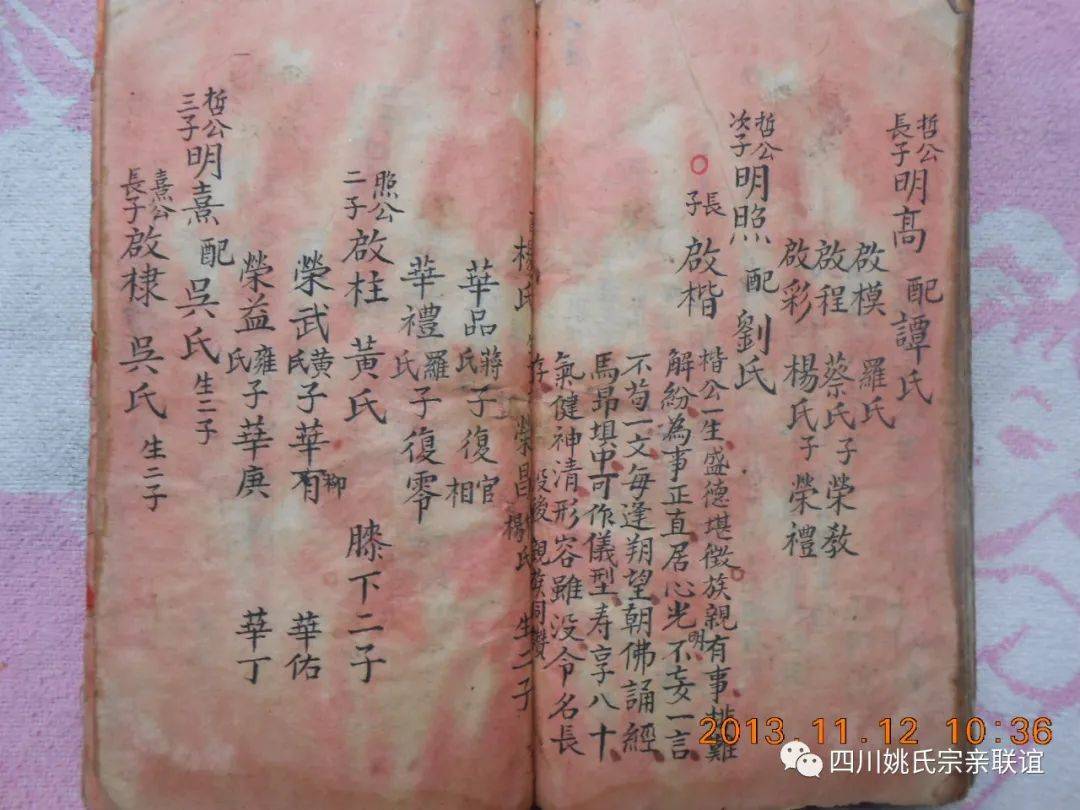 哲公長子明高 配譚氏
啟模 羅氏
啟程 蔡氏子榮教
啟彩 楊氏子榮禮
哲公次子明照 配劉氏
長子 啟楷
楷公一生盛德堪徵族親有事排難
解紛為事正直居心光明不妄一言
不苟一文每逢朔望朝佛誦經
馬昂塤中可作儀型寿享八十
氣健神清形容雖没令名長
存 殁後親族同讚
榮昌 楊氏 生二子
楊氏
華品 蔣氏子復官 相
華禮 羅氏子復零
照公二子啟柱 黃氏 膝下二子
榮武 黃氏子華有 柳 華佑
榮益 雍氏子華庚 華丁
哲公三子明熹 配吳氏 生二子
熹公長子啟棣 吳氏 生二子
2013.11.12 10:36
四川姚氏宗亲联谊